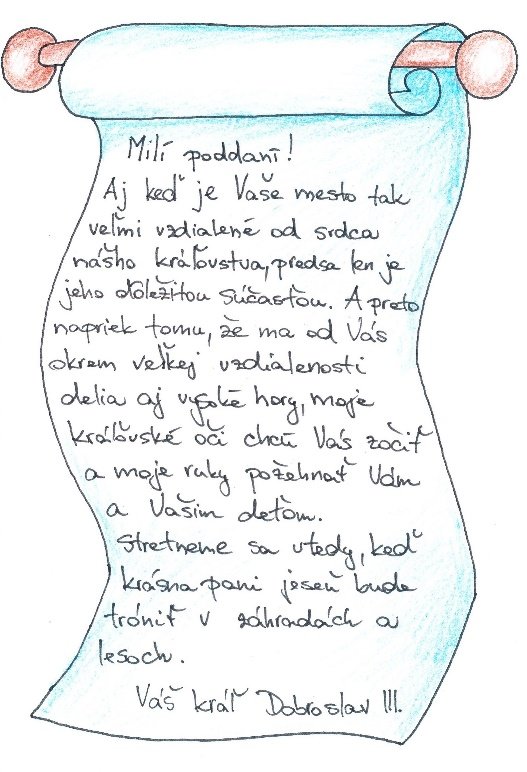 Milí poddaní!
Aj keď je Vaše mesto tak
veľmi vzdialené od srdca
nášho kráľovstva, predsa len je
jeho dôležitou súčasťou. A preto
napriek tomu, že ma od Vás
okrem veľkej vzdialenosti
delia aj vysoké hory, moje
kráľovské oči chcú Vás zočiť
a moje ruky požehnať Vám
a Vašim deťom.
Stretneme sa vtedy, keď
krásna pani jeseň bude
tróniť v záhradách a
lesoch.
Váš kráľ Dobroslav III.